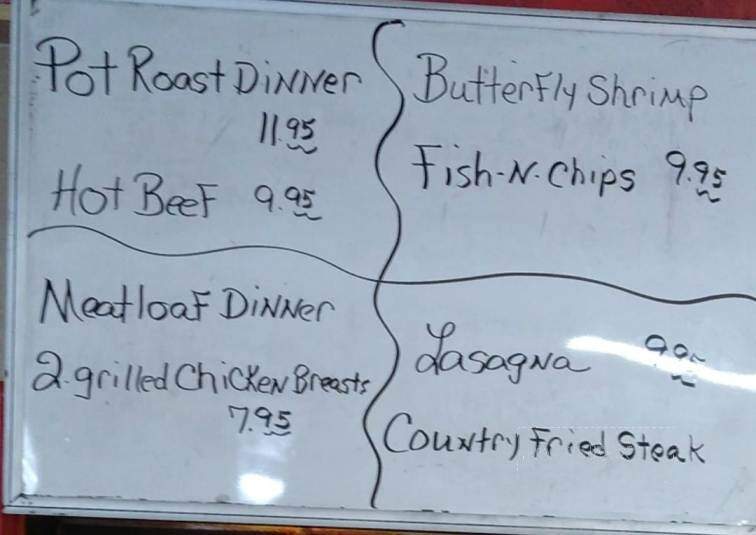 Pot Roast Dinner
11.95
Hot Beef 9.95
Butterfly Shrimp
Fish-N-Chips 9.95
Meatloaf Dinner
2-grilled Chicken Breasts
7.95
Lasagna
Country Fried Steak